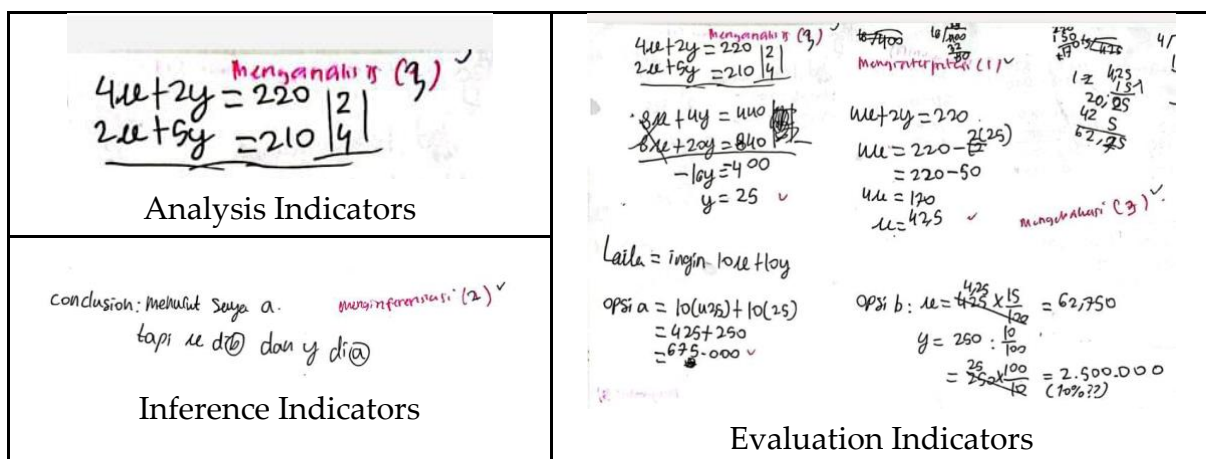 4x+2y = 220 |2|
2x+5y = 210 |4|
Menganalisis (3) ✓
Analysis Indicators
conclusion: menurut saya a.
tapi x di ⓑ dan y di ⓐ
menginferensasi (2) ✓
Inference Indicators
Menganalisis (3) ✓
4x+2y = 220 |2|
2x+5y = 210 |4|
8x+4y = 440
8x+20y = 840
-16y = 400
y = 25 ✓
Menginterpretasi (1) ✓
4x+2y = 220
4x = 220 - 2(25)
= 220-50
4x = 170
x = 42,5 ✓
mengevaluasi (3) ✓
Laila = ingin 10x+10y
opsi a = 10(42,5)+10(25)
= 425+250
= 675.000 ✓
opsi b : x = 425 x 15/100 = 62,750
4,25
y = 250 : 10/100
= 250 x 100/10 = 2.500.000
25
(10%??)
Evaluation Indicators